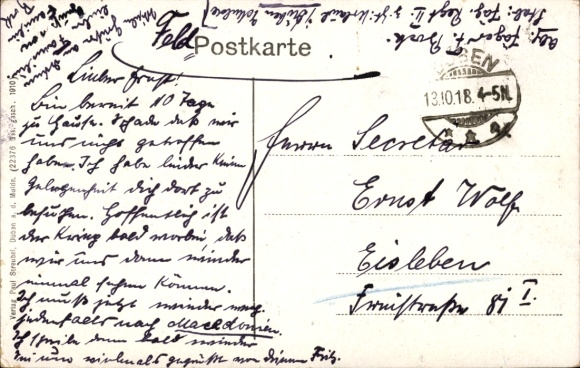 Feld Postkarte
Lieber Ernst!
Bin bereit 10 Tage
zu Hause. Schade daß wir
uns nicht getroffen
haben. Ich habe leider keine
Gelegenheit dich dort zu
besuchen. Hoffentlich ist
der Krieg bald vorbei, daß
wir uns dann wieder
einmal sehen können.
Ich muß jetzt wieder weg,
jedenfalls nach Macedonien.
Ich schreibe dann bald wieder
Sei nun vielmals gegrüßt von deinem Fritz.
Abs. Jäger F.
BEN
13.10.18. 4-5N.
Herrn Secretär
Ernst Wolf
Eisleben
Freistraße 81 I.
Verlag Paul Streubel, Düben a. d. Mulde. (22376 Ges. gesch. 1910)